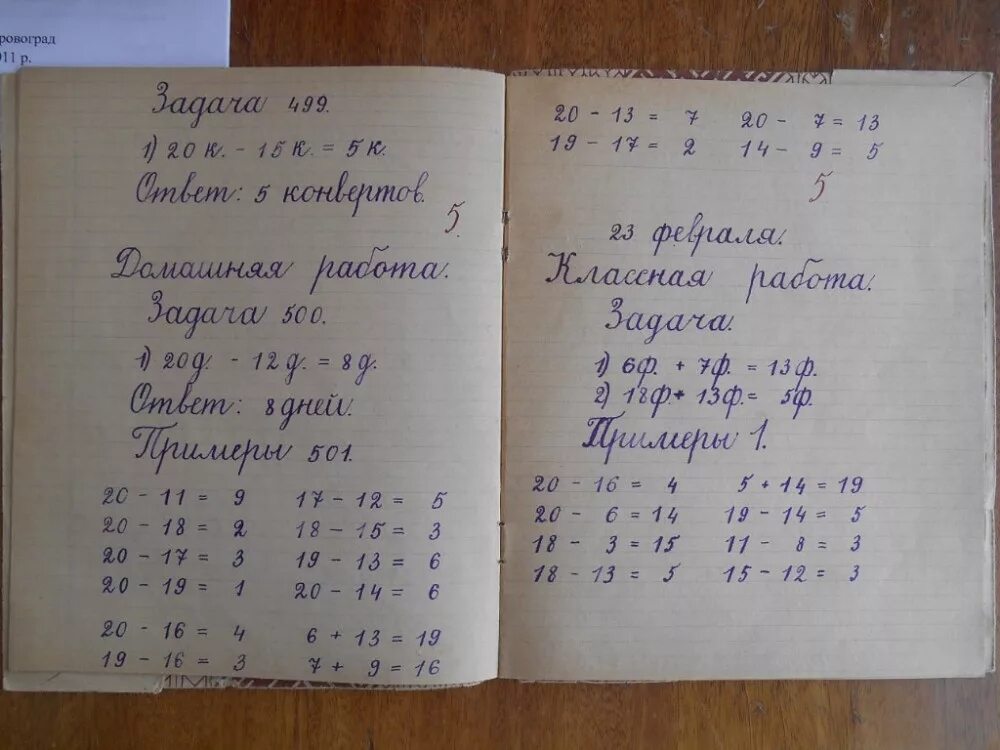 ровоград
011 р.
Задача 499.
1) 20 к. - 15 к. = 5 к.
Ответ: 5 конвертов.
5.
Домашняя работа.
Задача 500.
1) 20 д. - 12 д. = 8 д.
Ответ: 8 дней.
Примеры 501.
20 - 11 = 9 17 - 12 = 5
20 - 18 = 2 18 - 15 = 3
20 - 17 = 3 19 - 13 = 6
20 - 19 = 1 20 - 14 = 6
20 - 16 = 4 6 + 13 = 19
19 - 16 = 3 7 + 9 = 16
20 - 13 = 7 20 - 7 = 13
19 - 17 = 2 14 - 9 = 5
5
23 февраля.
Классная работа.
Задача.
1) 6ф. + 7ф. = 13ф.
2) 18ф. + 13ф. = 5ф.
Примеры 1.
20 - 16 = 4 5 + 14 = 19
20 - 6 = 14 19 - 14 = 5
18 - 3 = 15 11 - 8 = 3
18 - 13 = 5 15 - 12 = 3